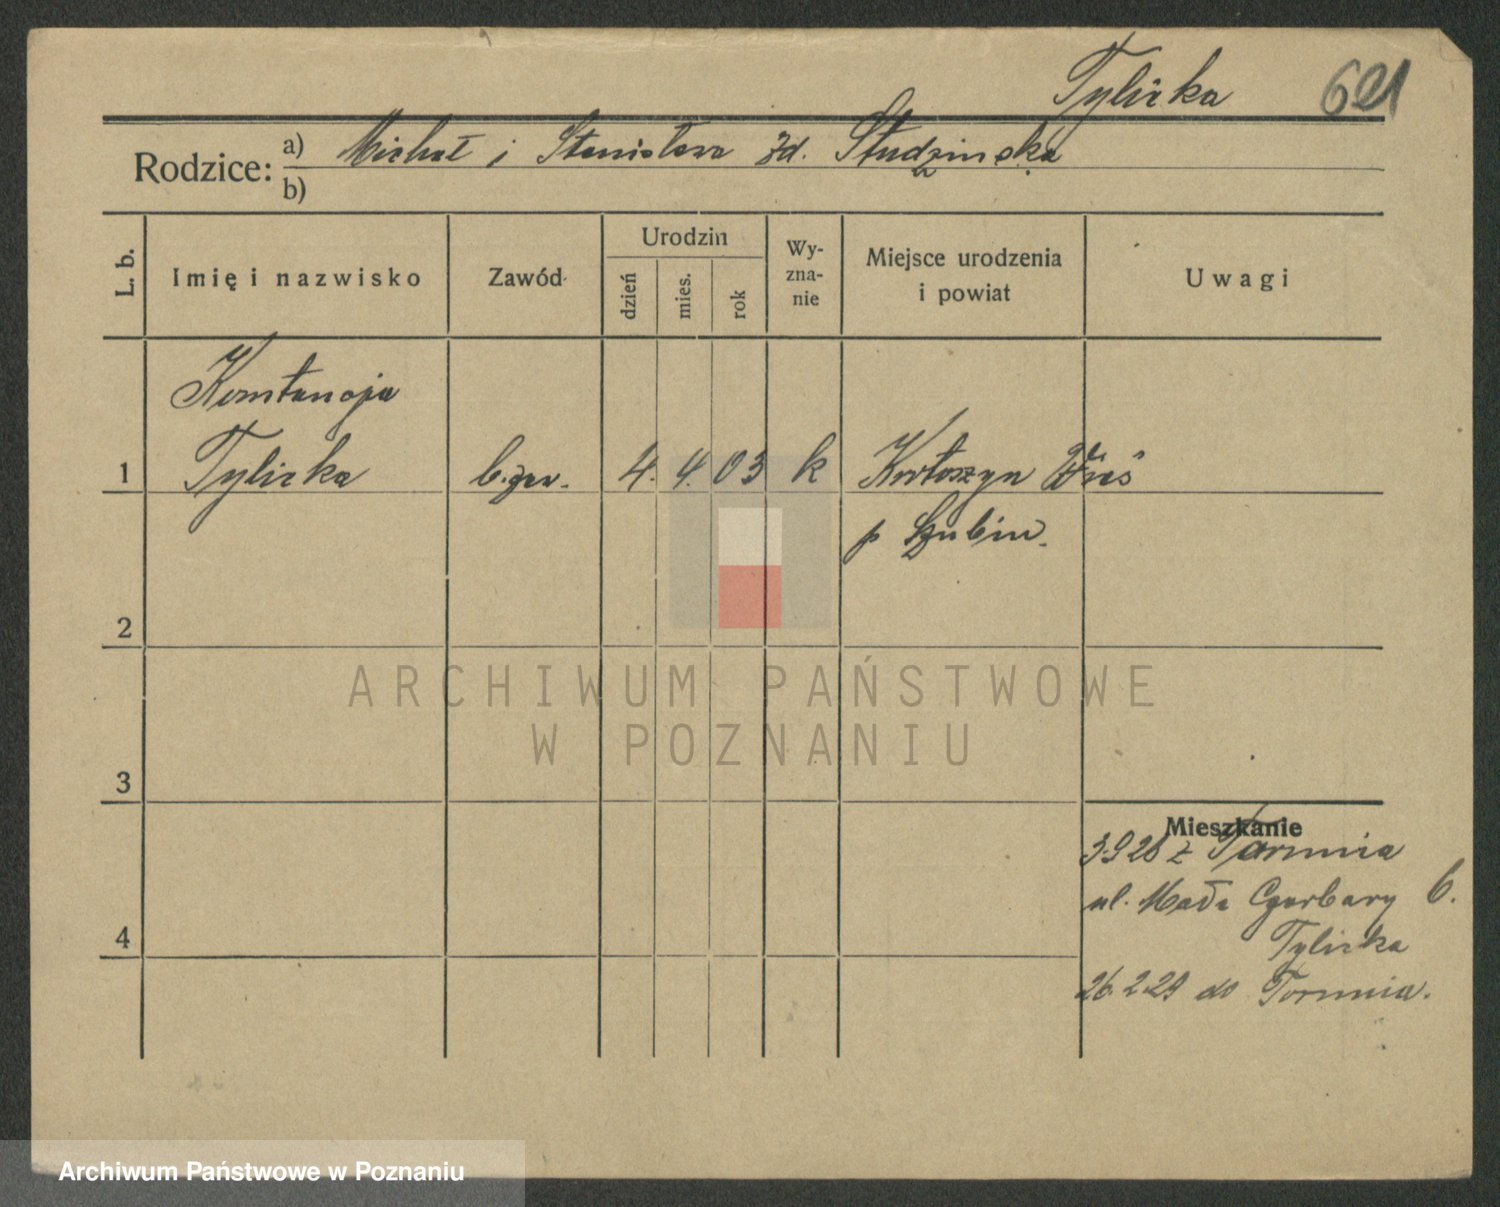 Tylicka 621
Rodzice: a) Michał i Stanisława zd. Studzinska
b)
L. b. Imię i nazwisko Zawód Urodzin dzień mies. rok Wy-zna-nie Miejsce urodzenia i powiat Uwagi
Konstancja
1 Tylicka b. zaw. 4. 4. 03 k Kortoszyn Wieś
p Szubin.
2
ARCHIWUM PAŃSTWOWE
W POZNANIU
3
Mieszkanie
3.9 28 z Torunia
ul. Małe Garbary 6.
Tylicka
4
26.2.29 do Torunia.
Archiwum Państwowe w Poznaniu